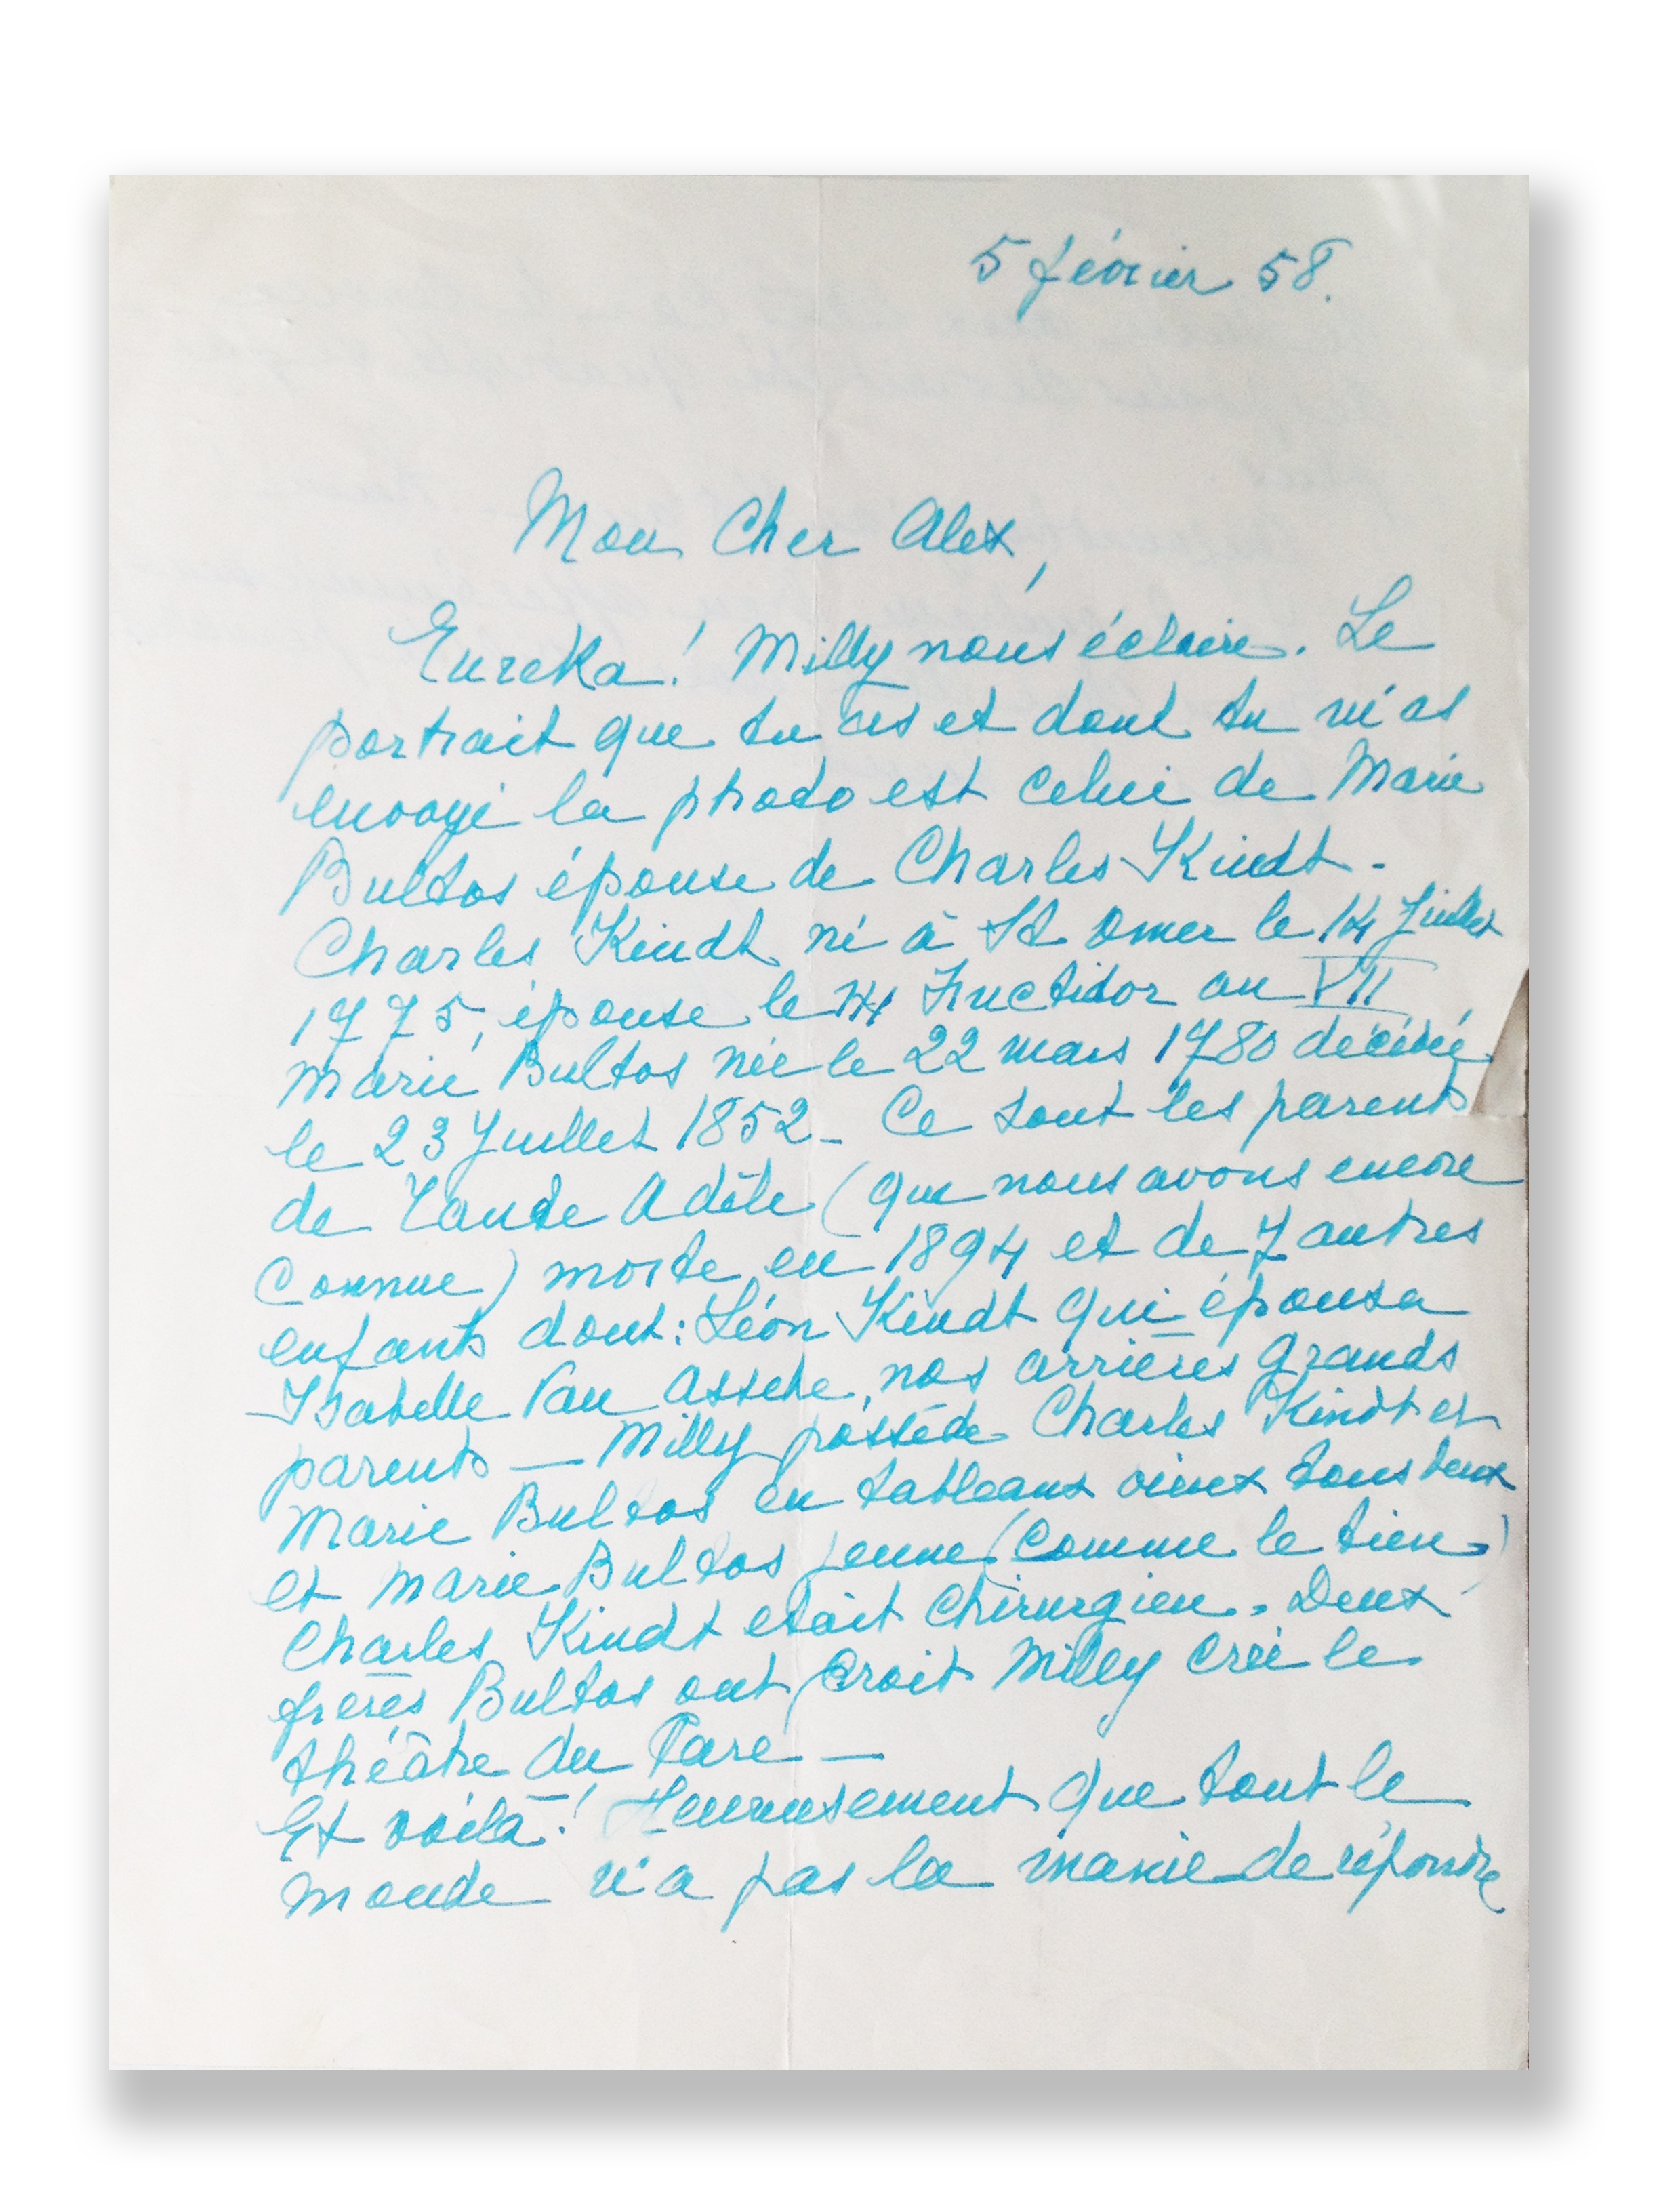 5 février 58.
Mon Cher Alex,
Eureka! Milly nous éclaire. Le
portrait que tu as et dont tu m'as
envoyé la photo est celui de Marie
Bultos épouse de Charles Kindt -
Charles Kindt né à St Omer le 14 Juillet
1775, épouse le 14 Fructidor an VII
Marie Bultos née le 22 mars 1780 décédée
le 23 Juillet 1852 - Ce sont les parents
de Tante Adèle (que nous avons encore
connue) morte en 1894 et de 7 autres
enfants dont: Léon Kindt qui épousa
Isabelle Van Assche, nos arrières grands
parents — Milly possède Charles Kindt et
Marie Bultos en tableaux vieux tous deux
et Marie Bultos jeune (comme le tien)
Charles Kindt était chirurgien. Deux
frères Bultos ont, croit Milly créé le
théâtre du Parc —
Et voilà! Heureusement que tout le
monde n'a pas la manie de répondre